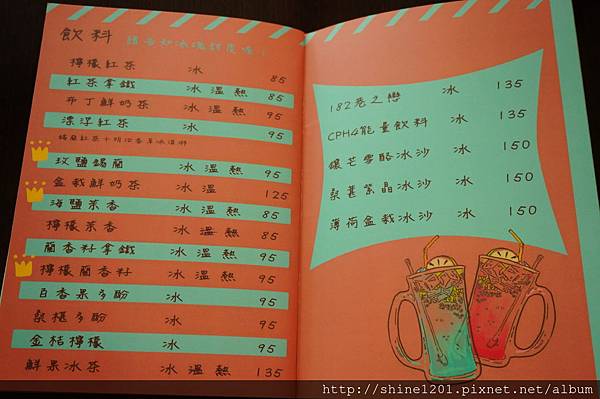 飲料
檸檬紅茶 冰 85
紅茶拿鐵 冰溫熱 85
布丁鮮奶茶 冰溫熱 95
漂浮紅茶 冰 95
玫鹽錫蘭 冰溫熱 95
盆栽鮮奶茶 冰溫 125
海鹽茉香 冰溫熱 85
檸檬茉香 冰溫熱 85
蘭香籽拿鐵 冰溫熱 95
檸檬蘭香籽 冰溫熱 95
百香果多酚 冰 95
桑椹多酚 冰 95
金桔檸檬 冰 95
鮮果冰茶 冰溫熱 135
182巷之戀 冰 135
CPH4能量飲料 冰 135
鏝芒雪酪冰沙 冰 150
桑葚紫晶冰沙 冰 150
薄荷盆栽冰沙 冰 150
http://shine1201.pixnet.net/album